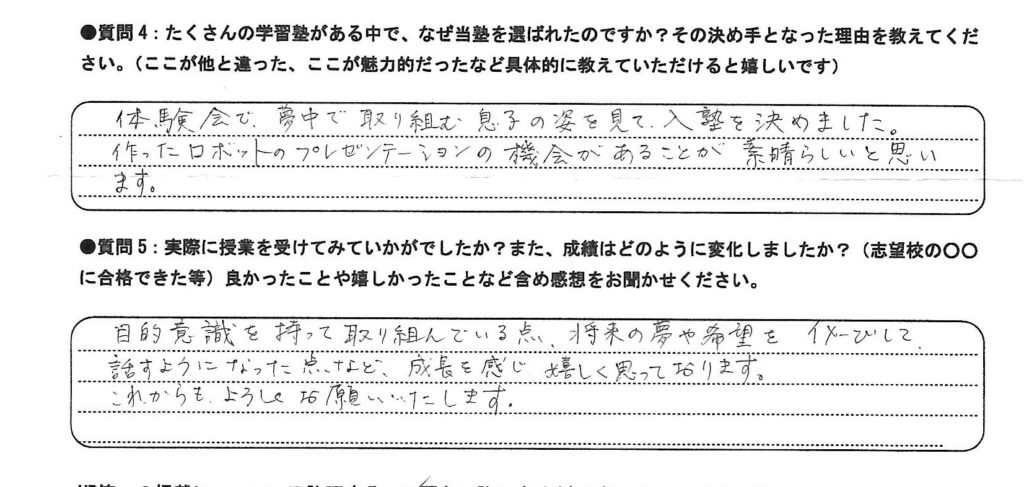 ●質問4：たくさんの学習塾がある中で、なぜ当塾を選ばれたのですか？その決め手となった理由を教えてくだ
さい。（ここが他と違った、ここが魅力的だったなど具体的に教えていただけると嬉しいです）
体験会で、夢中で取り組む息子の姿を見て、入塾を決めました。
作ったロボットのプレゼンテーションの機会があることが素晴らしいと思い
ます。
●質問5：実際に授業を受けてみていかがでしたか？また、成績はどのように変化しましたか？（志望校の〇〇
に合格できた等）良かったことや嬉しかったことなど含め感想をお聞かせください。
目的意識を持って取り組んでいる点、将来の夢や希望を して、
話すようになった点など、成長を感じ嬉しく思っております。
これからも、よろしくお願いいたします。